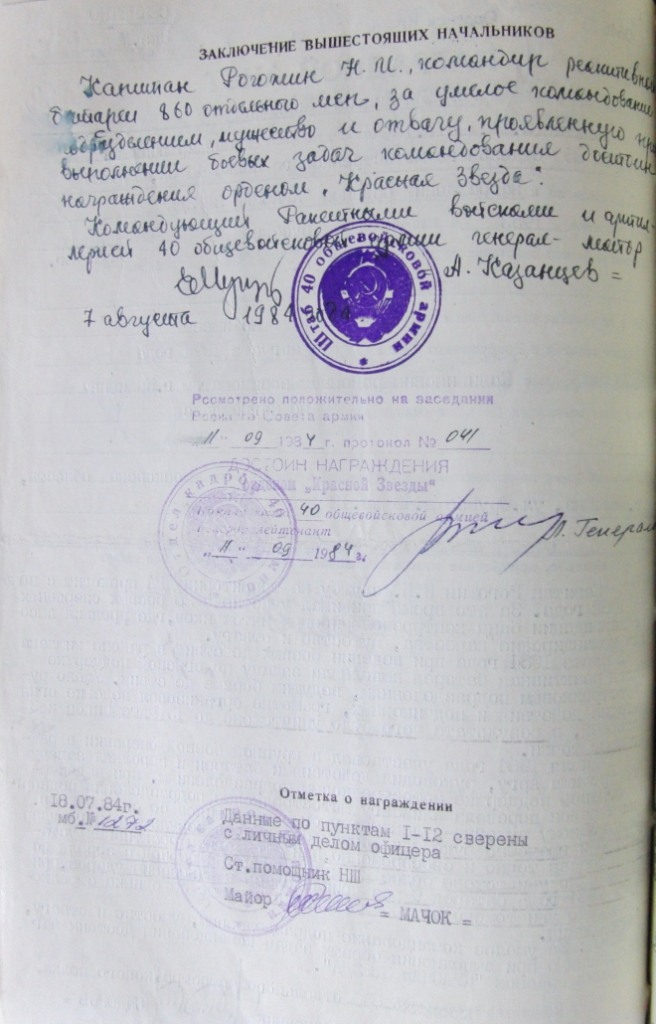 ЗАКЛЮЧЕНИЕ ВЫШЕСТОЯЩИХ НАЧАЛЬНИКОВ
Капитан Рогожин Н.И., командир реактивной
батареи 860 отдельного мсп, за умелое командование
подразделением, мужество и отвагу, проявленную при
выполнении боевых задач командования достоин
награждения орденом „Красная Звезда".
Командующий Ракетными войсками и артил-
лерией 40 общевойсковой армии генерал-майор
А. Казанцев =
7 августа 1984 года
Штаб 40 общевойсковой армии
Рассмотрено положительно на заседании
Военного Совета армии
„11" 09 1984 г. протокол № 041
ДОСТОИН НАГРАЖДЕНИЯ
орденом „Красной Звезды"
40 общевойсковой армией
генерал-лейтенант
Генерал
„11" 09 1984 г.
Отдел кадров 40
Отметка о награждении
18.07.84г.
мб.№ 1272
Данные по пунктам I-I2 сверены
с личным делом офицера
Ст.помощник НШ
Майор = МАЧОК =